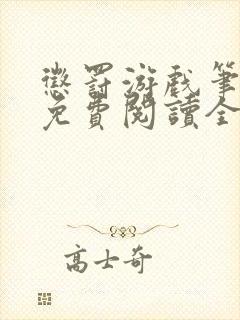 懲罰游戲筆
免費閱讀全
高士奇